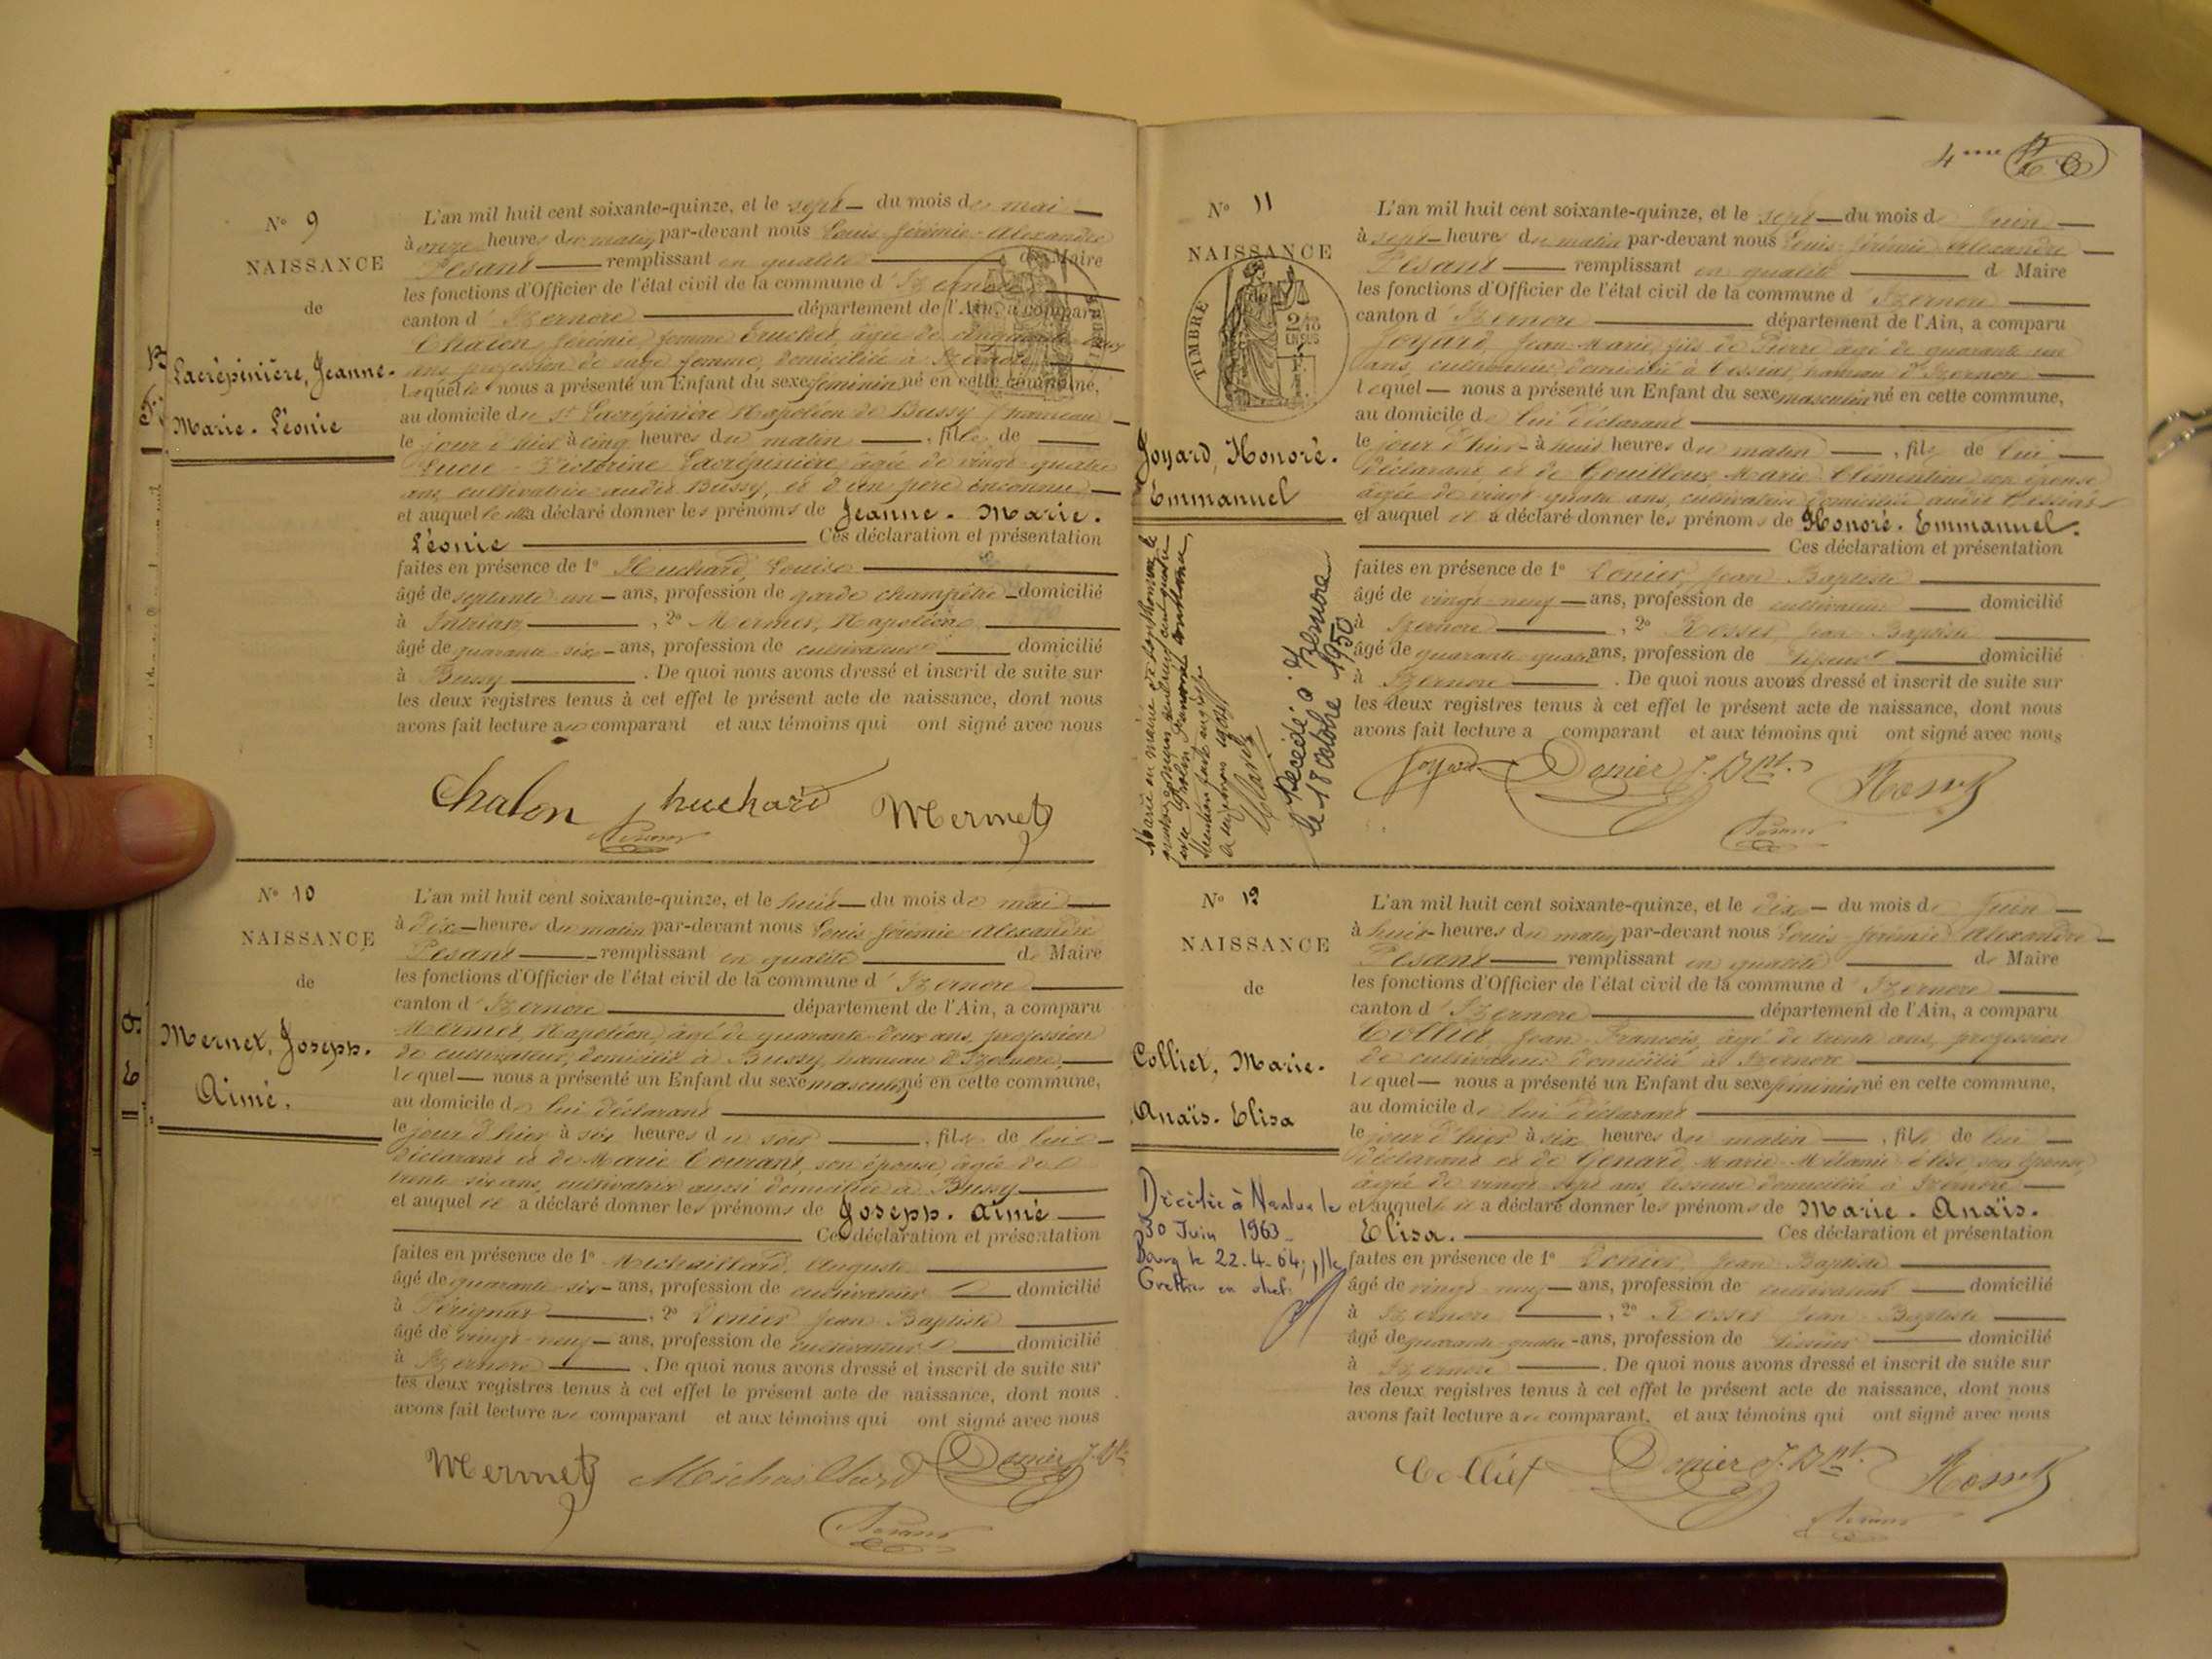 N° 9
NAISSANCE
de
Lacrépinière, Jeanne-
Marie-Léonie
L'an mil huit cent soixante-quinze, et le sept du mois de mai
à onze heures du matin par-devant nous Louis Jérémie Alexandre
Pesant remplissant en qualité de Maire
les fonctions d'Officier de l'état civil de la commune d'Izernore
canton d'Izernore département de l'Ain, a comparu
Chalon Jérémie, femme Truchet, âgée de cinquante
ans profession de sage femme, domiciliée à Izernore
laquelle nous a présenté un Enfant du sexe féminin né en cette commune,
au domicile du Sr Lacrépinière Napoléon de Bussy hameau
le jour d'hier à cinq heures du matin, fille de
Lucie Victorine Lacrépinière âgée de vingt quatre
ans cultivatrice audit Bussy, et d'un père inconnu
et auquel elle a déclaré donner les prénoms de Jeanne-Marie-
Léonie Ces déclaration et présentation
faites en présence de 1° Huchard, Louis
âgé de septante un ans, profession de garde champêtre domicilié
à Intriat, 2° Mermet, Napoléon
âgé de quarante six ans, profession de cultivateur domicilié
à Bussy. De quoi nous avons dressé et inscrit de suite sur
les deux registres tenus à cet effet le présent acte de naissance, dont nous
avons fait lecture au comparant et aux témoins qui ont signé avec nous
Chalon huchard Mermet
Pesant
N° 10
NAISSANCE
de
Mermet, Joseph-
Aimé.
L'an mil huit cent soixante-quinze, et le huit du mois de mai
à dix heures du matin par-devant nous Louis Jérémie Alexandre
Pesant remplissant en qualité de Maire
les fonctions d'Officier de l'état civil de la commune d'Izernore
canton d'Izernore département de l'Ain, a comparu
Mermet, Napoléon, âgé de quarante deux ans, profession
de cultivateur, domicilié à Bussy, hameau d'Izernore,
lequel nous a présenté un Enfant du sexe masculin né en cette commune,
au domicile de lui déclarant
le jour d'hier à six heures du soir, fils de lui
déclarant et de Marie Courant, son épouse, âgée de
trente six ans, cultivatrice aussi domiciliée à Bussy
et auquel il a déclaré donner les prénoms de Joseph-Aimé
Ces déclaration et présentation
faites en présence de 1° Michaillard, Auguste
âgé de quarante six ans, profession de cultivateur domicilié
à Pérignat, 2° Donier Jean Baptiste
âgé de vingt-neuf ans, profession de cultivateur domicilié
à Izernore. De quoi nous avons dressé et inscrit de suite sur
les deux registres tenus à cet effet le présent acte de naissance, dont nous
avons fait lecture au comparant et aux témoins qui ont signé avec nous
Mermet Michaillard Donier J. Bte
Pesant
4me
N° 11
NAISSANCE
TIMBRE
Joyard, Honoré-
Emmanuel
Décédé à Izernore
le 18 octobre 1950
L'an mil huit cent soixante-quinze, et le sept du mois de Juin
à sept heures du matin par-devant nous Louis Jérémie Alexandre
Pesant remplissant en qualité de Maire
les fonctions d'Officier de l'état civil de la commune d'Izernore
canton d'Izernore département de l'Ain, a comparu
Joyard, Jean Marie, fils de Pierre âgé de quarante un
ans, cultivateur, domicilié à Tessiat, hameau d'Izernore
lequel nous a présenté un Enfant du sexe masculin né en cette commune,
au domicile de lui déclarant
le jour d'hier à huit heures du matin, fils de lui
déclarant et de Gouilloux Marie Clémentine son épouse
âgée de vingt quatre ans, cultivatrice domiciliée audit Tessiat
et auquel il a déclaré donner les prénoms de Honoré-Emmanuel.
Ces déclaration et présentation
faites en présence de 1° Donier, Jean Baptiste
âgé de vingt-neuf ans, profession de cultivateur domicilié
à Izernore, 2° Rosset Jean Baptiste
âgé de quarante quatre ans, profession de domicilié
à Izernore. De quoi nous avons dressé et inscrit de suite sur
les deux registres tenus à cet effet le présent acte de naissance, dont nous
avons fait lecture a comparant et aux témoins qui ont signé avec nous
Joyard Donier J. Bte. Rosset
Pesant
N° 12
NAISSANCE
de
Colliet, Marie-
Anaïs-Elisa
Décédée à Nantua le
30 Juin 1963
Bourg le 22.4.64; p/le
Greffier en chef
L'an mil huit cent soixante-quinze, et le dix du mois de Juin
à huit heures du matin par-devant nous Louis Jérémie Alexandre
Pesant remplissant en qualité de Maire
les fonctions d'Officier de l'état civil de la commune d'Izernore
canton d'Izernore département de l'Ain, a comparu
Colliet, Jean François, âgé de trente ans, profession
de cultivateur domicilié à Izernore
lequel nous a présenté un Enfant du sexe féminin né en cette commune,
au domicile de lui déclarant
le jour d'hier à six heures du matin, fille de lui
déclarant et de Genard, Marie Mélanie Elise, son épouse,
âgée de vingt sept ans, tisseuse domiciliée à Izernore
et auquel il a déclaré donner les prénoms de Marie-Anaïs-
Elisa. Ces déclaration et présentation
faites en présence de 1° Donier, Jean Baptiste
âgé de vingt neuf ans, profession de cultivateur domicilié
à Izernore, 2° Rosset Jean Baptiste
âgé de quarante quatre ans, profession de domicilié
à Izernore. De quoi nous avons dressé et inscrit de suite sur
les deux registres tenus à cet effet le présent acte de naissance, dont nous
avons fait lecture au comparant, et aux témoins qui ont signé avec nous
Colliet Donier J. Bte. Rosset
Pesant